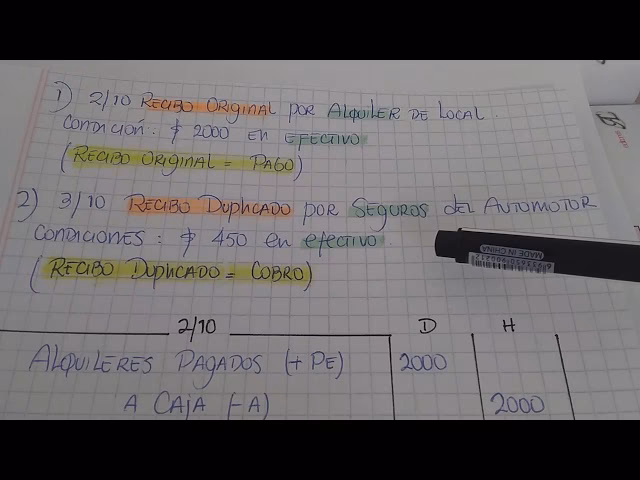 1) 2/10 RECIBO ORIGINAL por ALQUILER DE LOCAL.
CONDICIÓN: $ 2000 en efectivo
(RECIBO ORIGINAL = PAGO)
2) 3/10 RECIBO DUPLICADO por SEGUROS DEL AUTOMOTOR
CONDICIONES: $ 450 en efectivo
(RECIBO DUPLICADO = COBRO)
2/10 D H
ALQUILERES PAGADOS (+ PE) 2000
A CAJA (-A) 2000
MADE IN CHINA